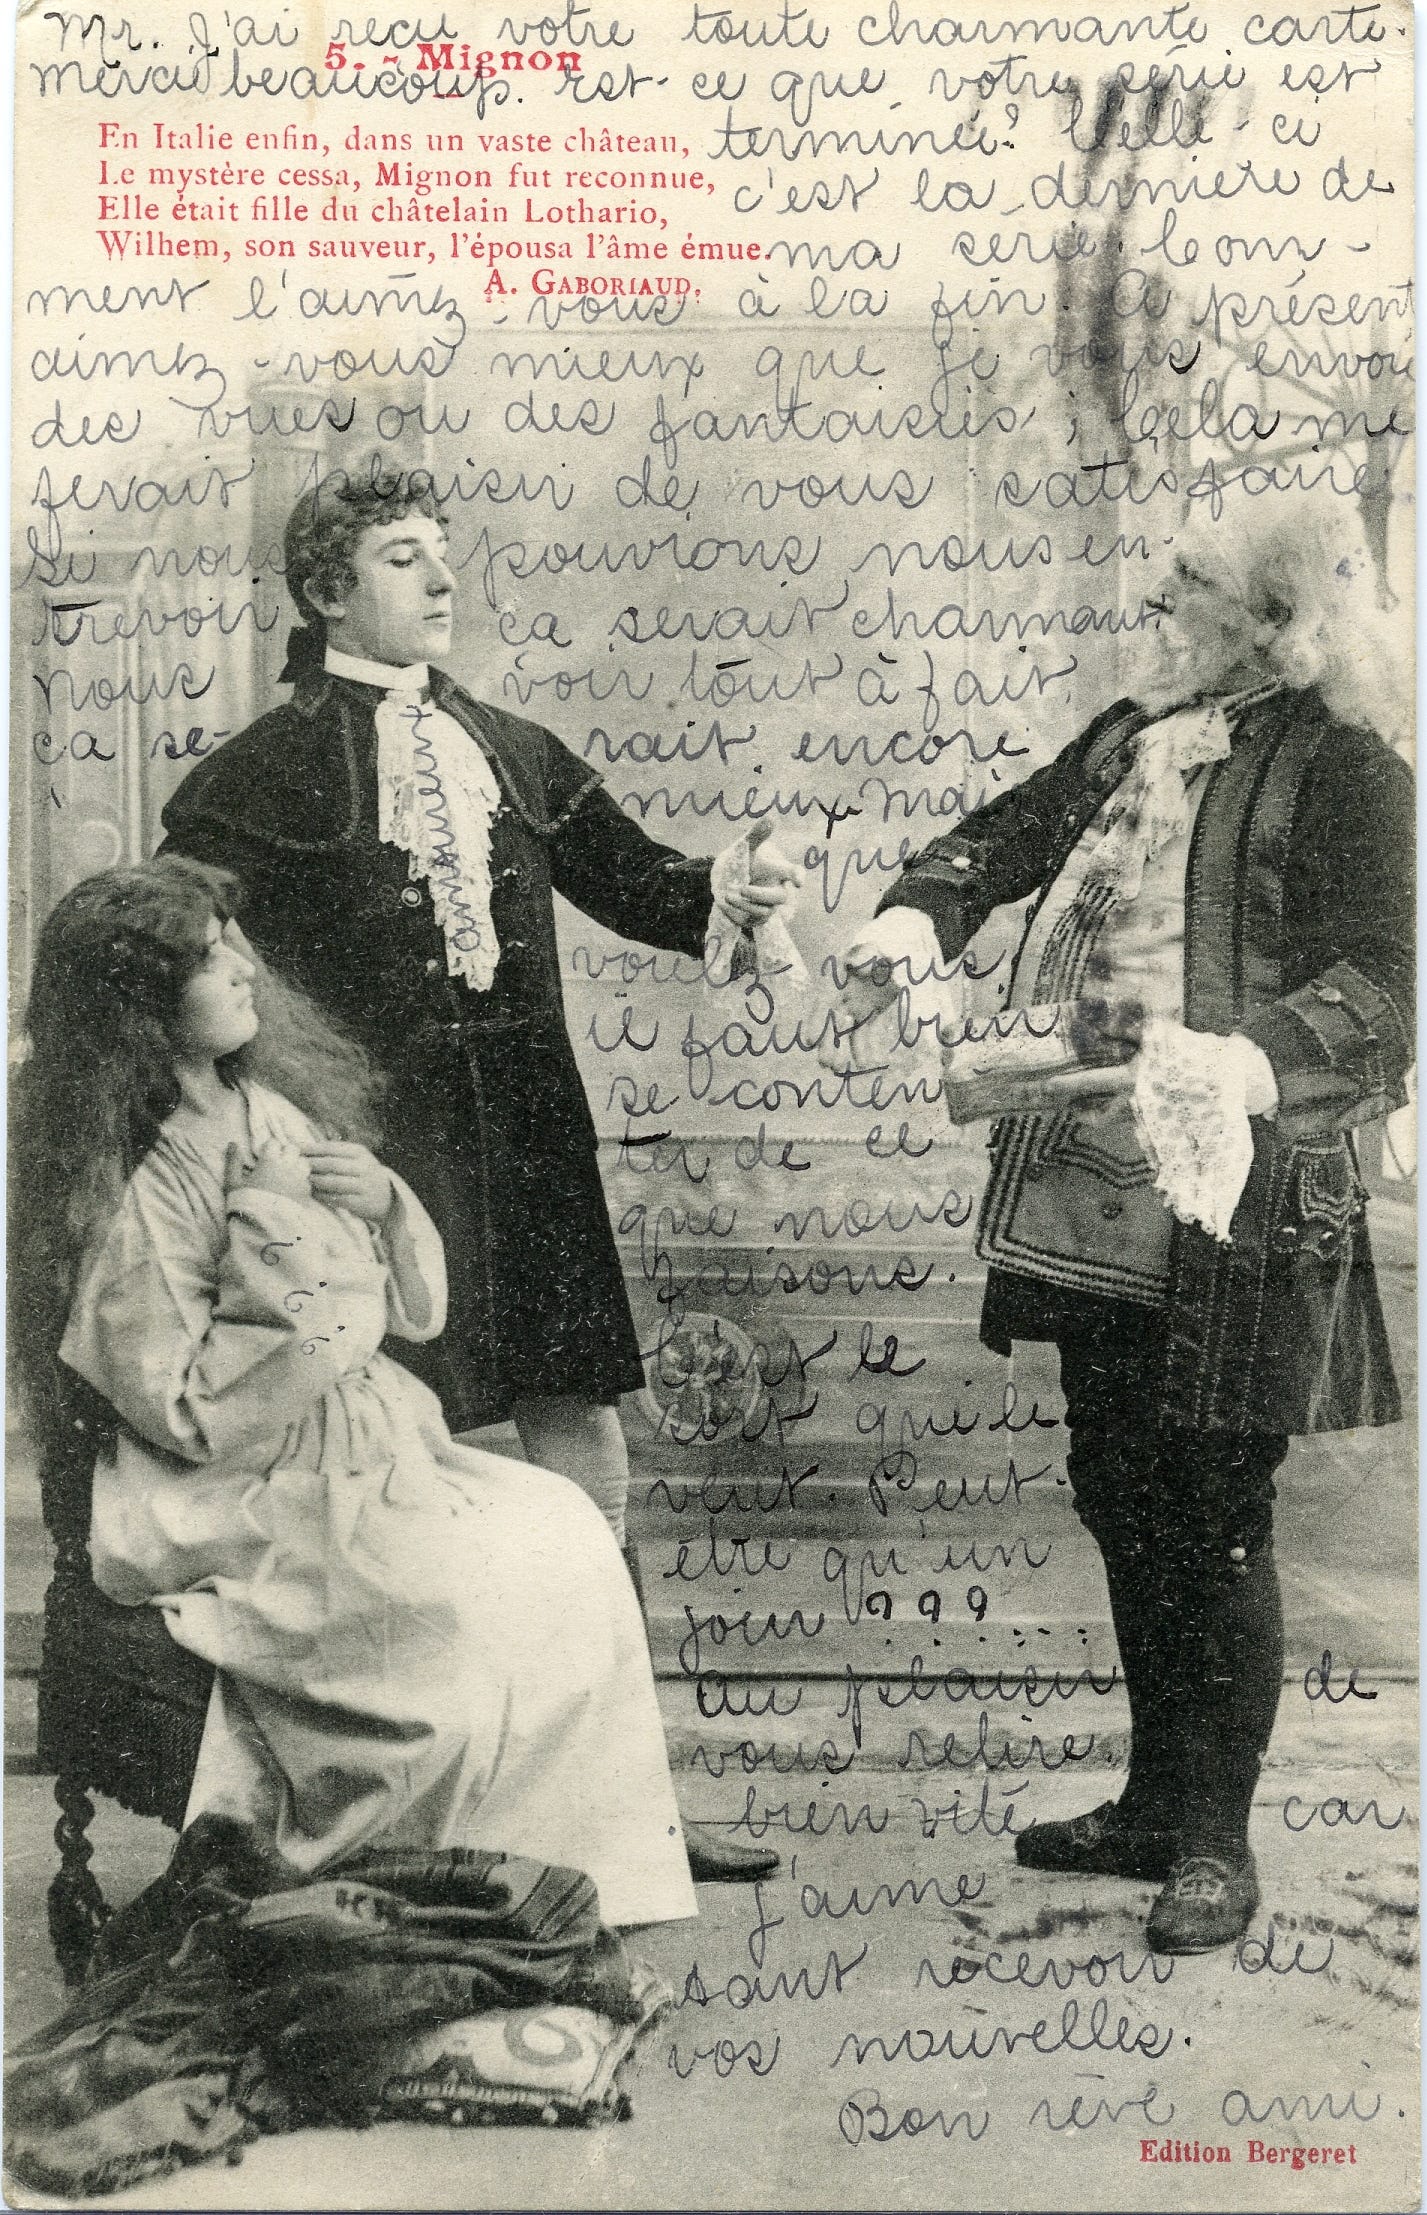 Mr. J'ai reçu votre toute charmante carte.
5. - Mignon
Merci beaucoup. Est-ce que votre série est
En Italie enfin, dans un vaste château,
terminée? Celle-ci
Le mystère cessa, Mignon fut reconnue,
c'est la dernière de
Elle était fille du châtelain Lothario,
Wilhem, son sauveur, l'épousa l'âme émue.
ma serie. Com-
A. GABORIAUD.
ment l'aimez-vous à la fin. A présent
aimez-vous mieux que je vous envoie
des vues ou des fantaisies; Cela me
ferait plaisir de vous satisfaire
Si nous pouvions nous en-
trevoir ça serait charmant.
Nous voir tout à fait.
ça se- rait encore
mieux Mai
que
voulez-vous
il faut bien
se conten
ter de ce
que nous
faisons.
C'est le
sort qui le
veut. Peut-
être qu'un
jour ???......
au plaisir de
vous relire.
bien vite car
j'aime
tant recevoir de
vos nouvelles.
Bon rêve ami.
amoureux
Edition Bergeret